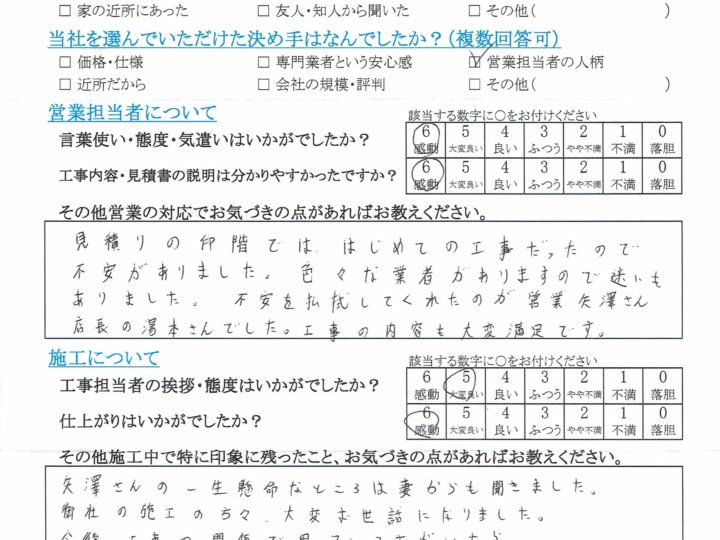 □ 家の近所にあった □ 友人・知人から聞いた □ その他( )
当社を選んでいただけた決め手はなんでしたか？(複数回答可)
□ 価格・仕様 □ 専門業者という安心感 ☑ 営業担当者の人柄
□ 近所だから □ 会社の規模・評判 □ その他( )
営業担当者について
該当する数字に〇をお付けください
言葉使い・態度・気遣いはいかがでしたか？
6 5 4 3 2 1 0
感動 大変良い 良い ふつう やや不満 不満 落胆
工事内容・見積書の説明は分かりやすかったですか？
6 5 4 3 2 1 0
感動 大変良い 良い ふつう やや不満 不満 落胆
その他営業の対応でお気づきの点があればお教えください。
見積りの段階では、はじめての工事だったので
不安がありました。色々な業者がありますので迷いも
ありました。不安を払拭してくれたのが営業矢澤さん
店長の湯本さんでした。工事の内容も大変満足です。
施工について
該当する数字に〇をお付けください
工事担当者の挨拶・態度はいかがでしたか？
6 5 4 3 2 1 0
感動 大変良い 良い ふつう やや不満 不満 落胆
仕上がりはいかがでしたか？
6 5 4 3 2 1 0
感動 大変良い 良い ふつう やや不満 不満 落胆
その他施工中で特に印象に残ったこと、お気づきの点があればお教えください。
矢澤さんの一生懸命なところは妻からも聞きました。
御社の施工の方々、大変お世話になりました。